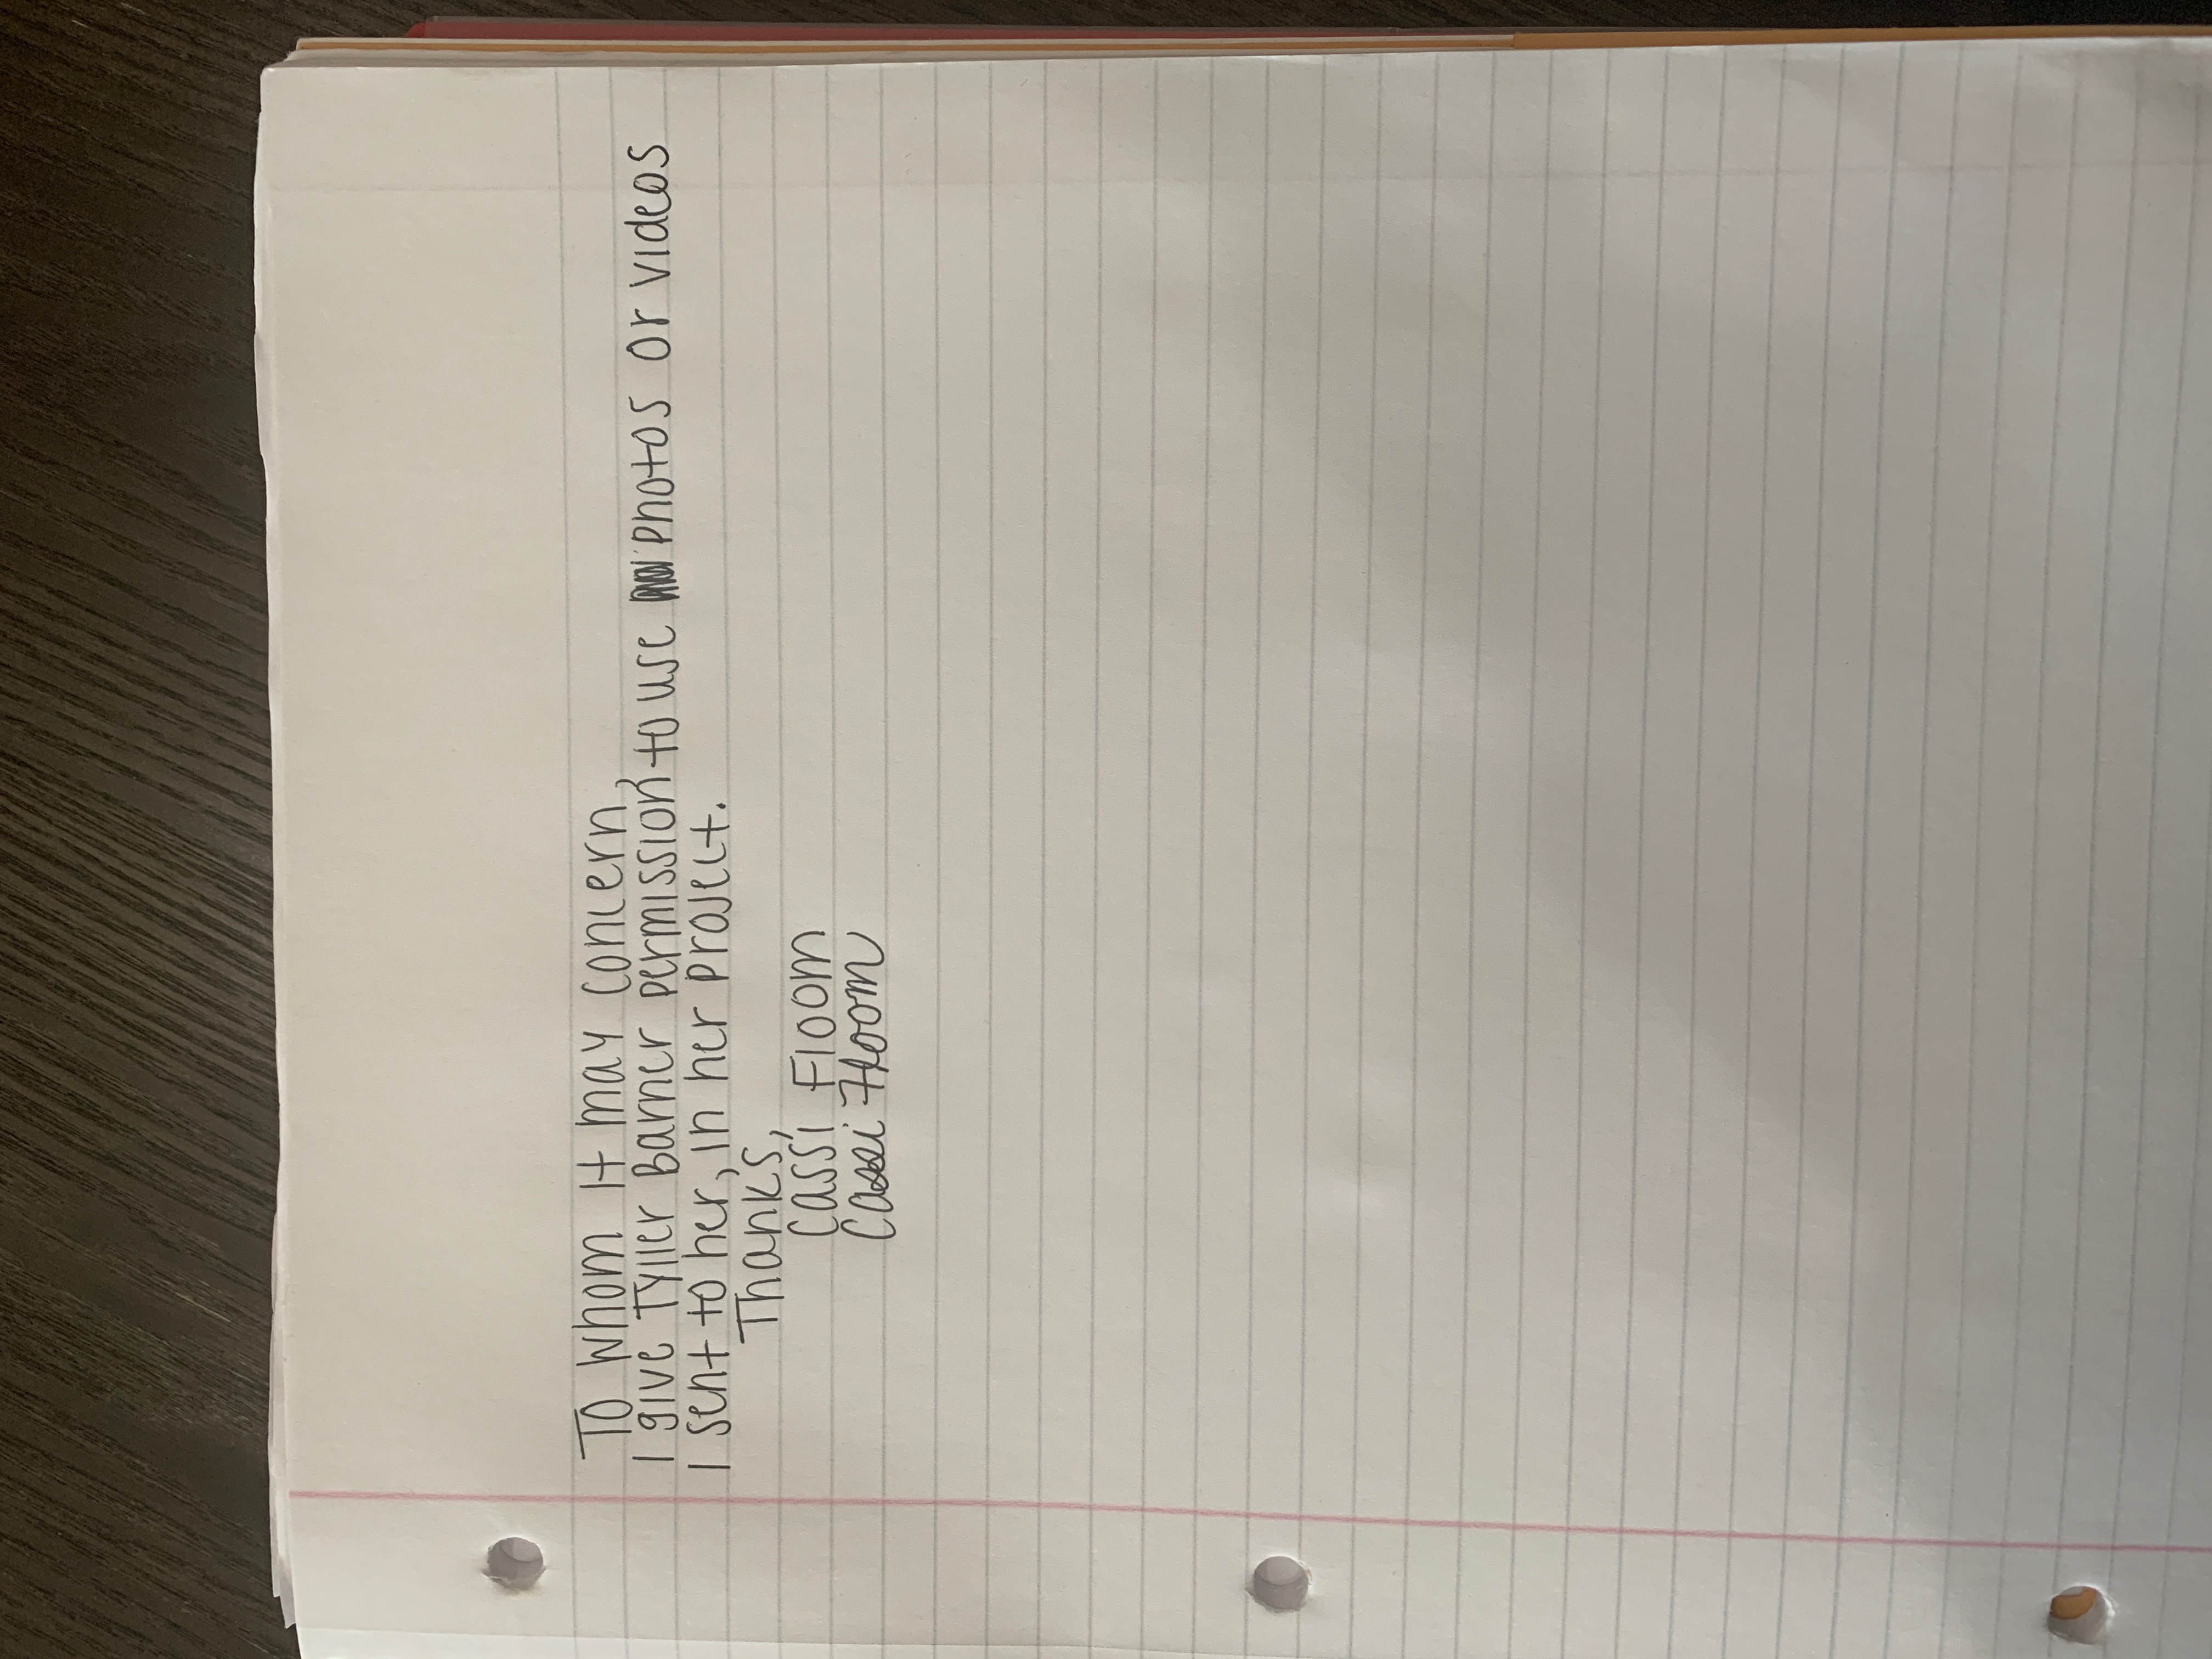 To whom it may concern,
I give Tyller Barner permission to use photos or videos
I sent to her, in her project.
Thanks,
Cassi Floom
Cassi Floom